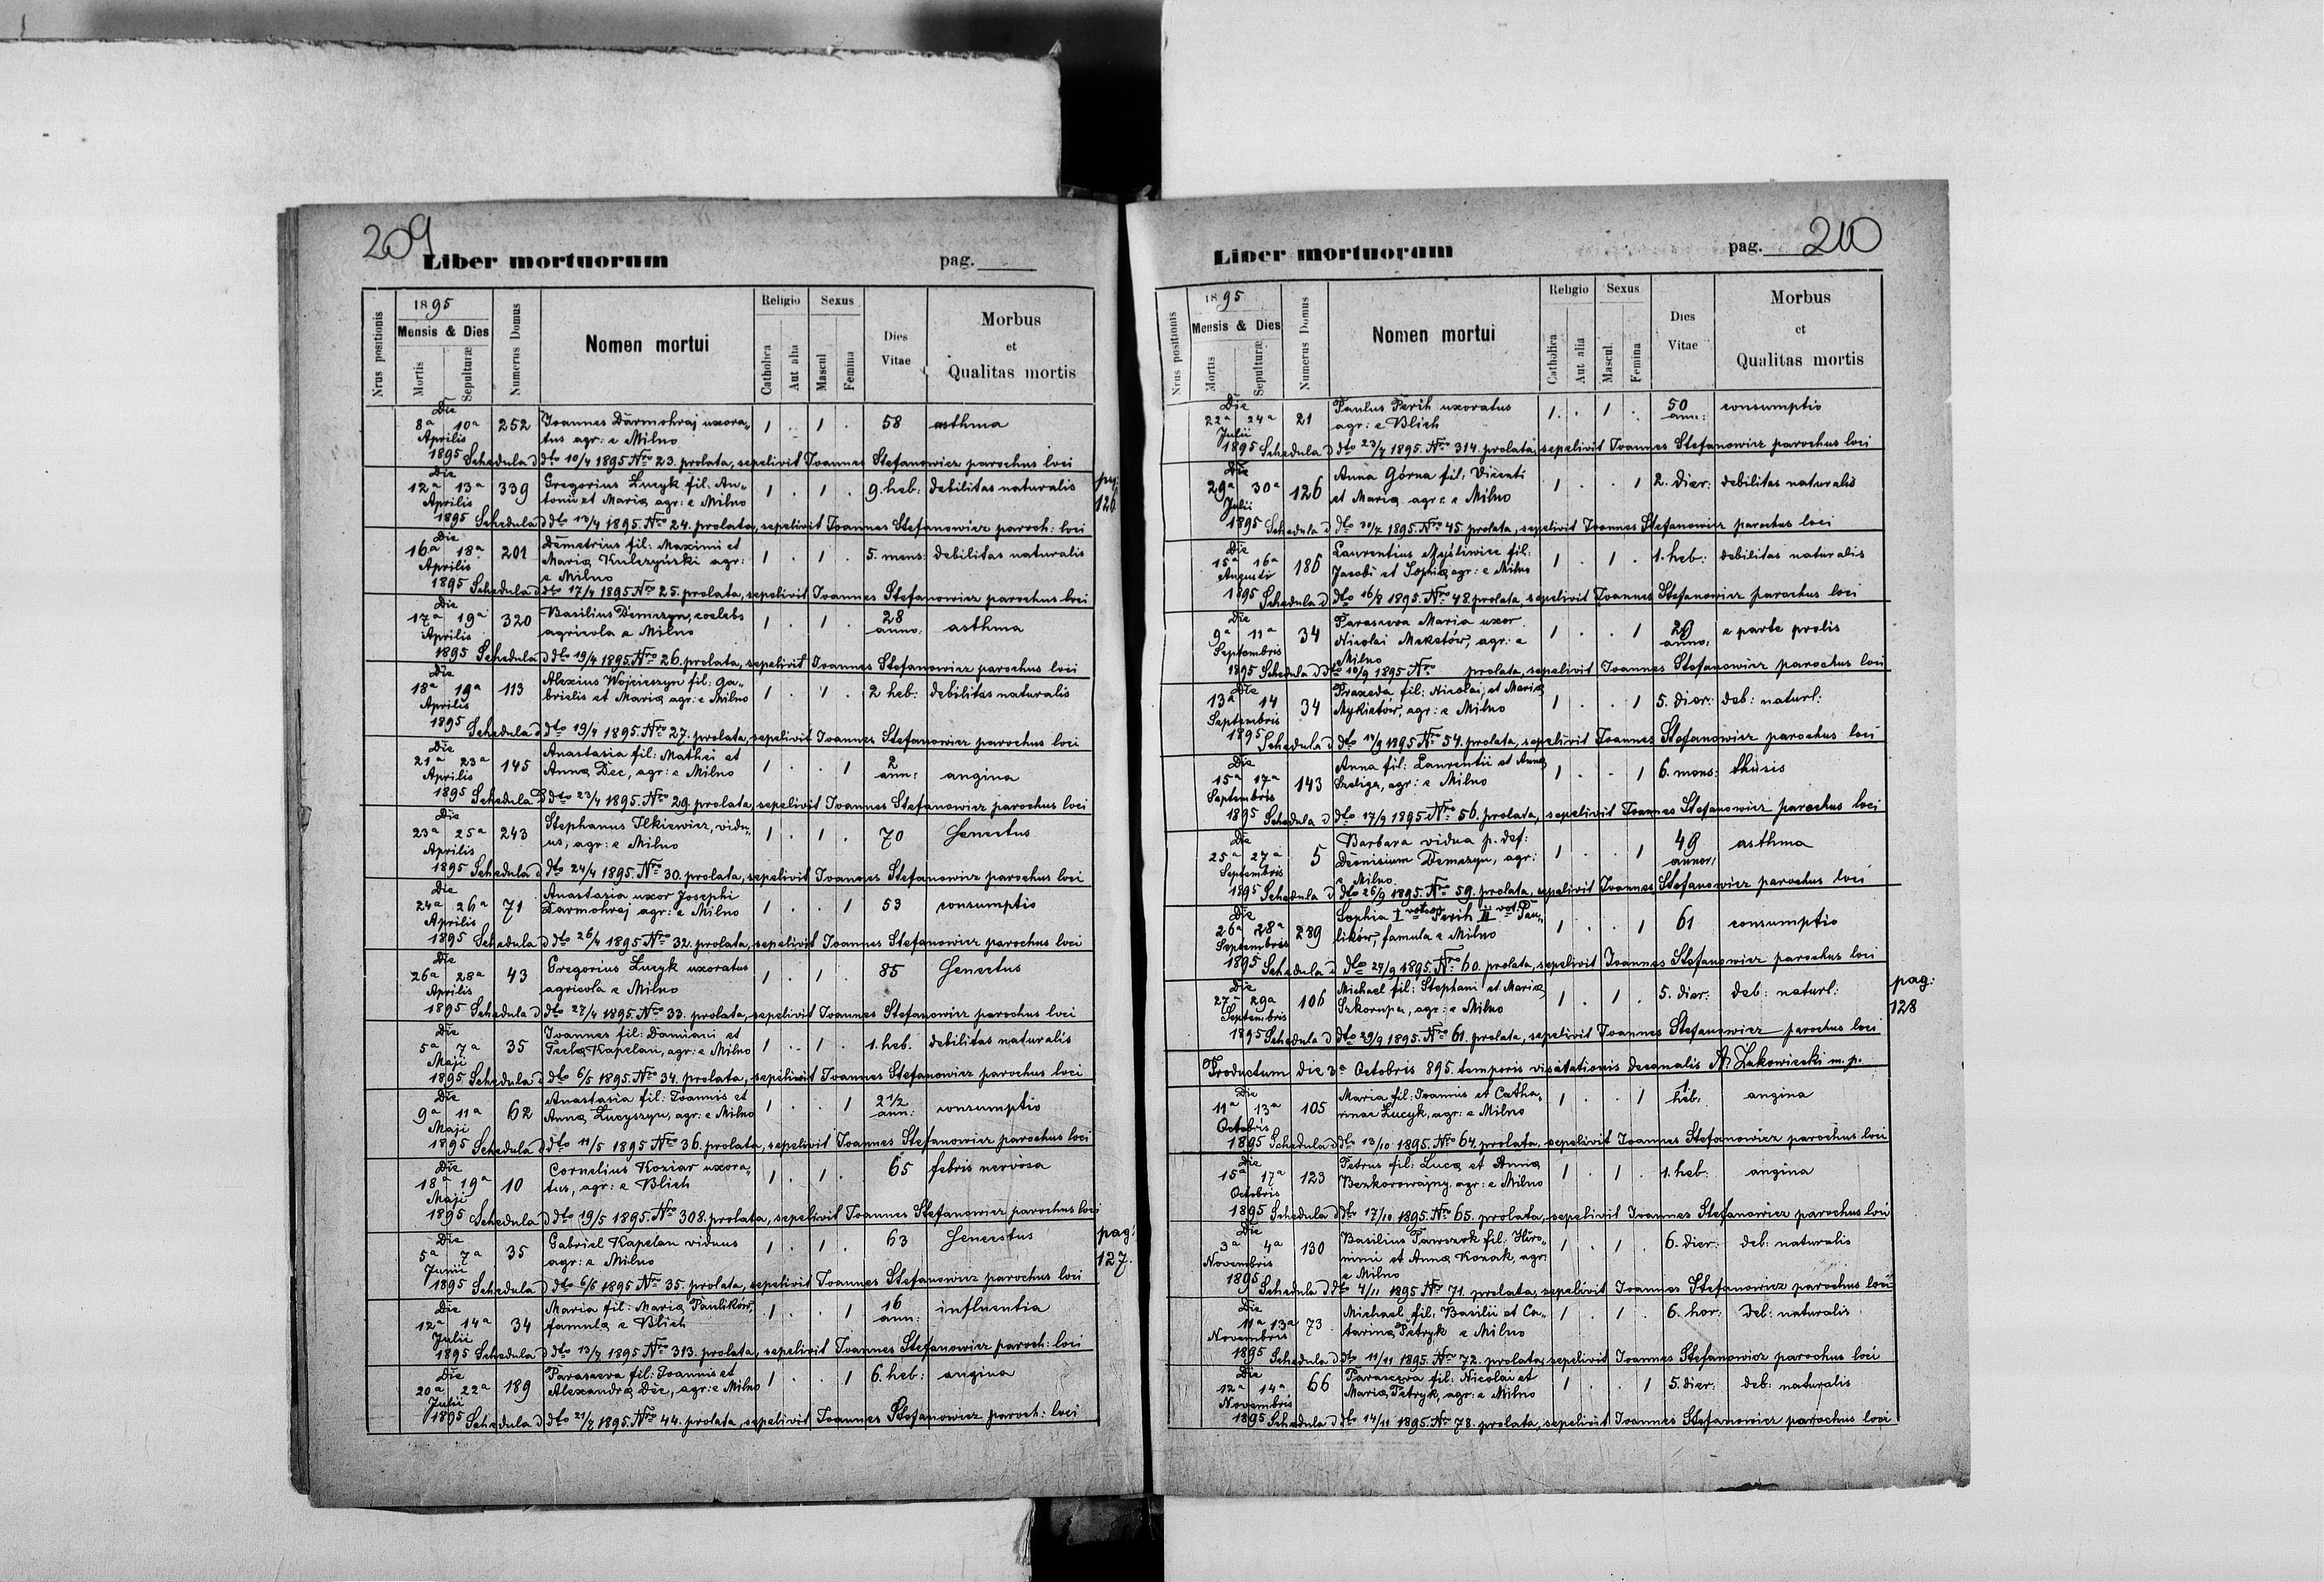 209
Liber mortuorum pag.
Nrus positionis
1895
Mensis & Dies
Mortis
Sepulturæ
Numerus Domus
Nomen mortui
Religio
Catholica
Aut alia
Sexus
Mascul
Femina
Dies
Vitae
Morbus
et
Qualitas mortis
Die
8a 10a 252 Joannes Darmohraj uxora- 1 . 1 . 58 asthma
Aprilis tus agr: e Milno
1895 Schedula d dto 10/4 1895 Nro 23. prolata, sepelivit Joannes Stefanowicz parochus loci
Die
12a 13a 339 Gregorius Lucyk fil: An- 1 . 1 . 9. heb: debilitas naturalis pag:
Aprilis tonii et Maria agr: e Milno 126
1895 Schedula d dto 13/4 1895. Nro 24. prolata, sepelivit Joannes Stefanowicz paroch: loci
Die
16a 18a 201 Demetrius fil: Maximi et 1 . 1 . 5. mens: debilitas naturalis
Aprilis Maria Kulczyński agr:
e Milno
1895 Schedula d dto 17/4 1895 Nro 25. prolata, sepelivit Joannes Stefanowicz parochus loci
Die
17a 19a 320 Basilius Demszyn, coelebs 1 . 1 . 28 asthma
Aprilis agricola e Milno anno:
1895 Schedula d dto 19/4 1895. Nro 26. prolata, sepelivit Joannes Stefanowicz parochus loci
Die
18a 19a 113 Alexius Wojcieszyn fil: Ga- 1 . 1 . 2 heb: debilitas naturalis
Aprilis brielis et Maria agr: e Milno
1895 Schedula d dto 19/4 1895. Nro 27. prolata, sepelivit Joannes Stefanowicz parochus loci
Die
21a 23a 145 Anastasia fil: Mathei et 1 . . 1 2 angina
Aprilis Anna Dec, agr: e Milno ann:
1895 Schedula d dto 23/4 1895. Nro 29. prolata, sepelivit Joannes Stefanowicz parochus loci
Die
23a 25a 243 Stephanus Ilkiewicz, vidu- 1 . 1 . 70 Senectus
Aprilis us, agr: e Milno
1895 Schedula d dto 24/4 1895. Nro 30. prolata, sepelivit Joannes Stefanowicz parochus loci
Die
24a 26a 71 Anastasia uxor Josephi 1 . . 1 53 consumptio
Aprilis Darmohraj agr: e Milno
1895 Schedula d dto 26/4 1895 Nro 32. prolata, sepelivit Joannes Stefanowicz parochus loci
Die
26a 28a 43 Gregorius Lucyk uxoratus 1 . 1 . 85 Senectus
Aprilis agricola e Milno
1895 Schedula d dto 27/4 1895 Nro 33. prolata, sepelivit Joannes Stefanowicz parochus loci
Die
5a 7a 35 Joannes fil: Damiani et 1 . 1 . 1. heb. debilitas naturalis
Maji Tecla Kapelan, agr: e Milno
1895 Schedula d dto 6/5 1895. Nro 34. prolata, sepelivit Joannes Stefanowicz parochus loci
Die
9a 11a 62 Anastasia fil: Joannis et 1 . . 1 2 1/2 consumptio
Maji Anna Lucyszyn, agr: e Milno ann:
1895 Schedula d dto 11/5 1895 Nro 36. prolata, sepelivit Joannes Stefanowicz parochus loci
Die
18a 19a 10 Cornelius Koziar uxora- 1 . 1 . 65 febris nervosa
Maji tus, agr: e Blich
1895 Schedula d dto 19/5 1895. Nro 308. prolata, sepelivit Joannes Stefanowicz parochus loci
Die
5a 7a 35 Gabriel Kapelan viduus 1 . 1 . 63 Senectus pag:
Junii agr: e Milno 127.
1895 Schedula d dto 6/6 1895 Nro 35. prolata, sepelivit Joannes Stefanowicz parochus loci
Die
12a 14a 34 Maria fil: Maria Paulików, 1 . . 1 16 influentia
Julii famula e Blich ann:
1895 Schedula d dto 13/7 1895 Nro 313. prolata, sepelivit Joannes Stefanowicz paroch: loci
Die
20a 22a 189 Parascewa fil: Joannis et 1 . . 1 6. heb: angina
Julii Alexandra Dec, agr: e Milno
1895 Schedula d dto 21/7 1895. Nro 44. prolata, sepelivit Joannes Stefanowicz paroch: loci
Liber mortuorum pag. 210
Nrus positionis
1895
Mensis & Dies
Mortis
Sepulturæ
Numerus Domus
Nomen mortui
Religio
Catholica
Aut alia
Sexus
Mascul.
Femina
Dies
Vitae
Morbus
et
Qualitas mortis
Die
22a 24a 21 Paulus Perih uxoratus 1 . 1 . 50 consumptio
Julii agr: e Blich ann:
1895 Schedula d dto 23/7 1895. Nro 314. prolata, sepelivit Joannes Stefanowicz parochus loci
Die
29a 30a 126 Anna Górna fil: Vicenti 1 . . 1 2. dier: debilitas naturalis
Julii et Maria agr: e Milno
1895 Schedula d dto 30/7 1895. Nro 45. prolata, sepelivit Joannes Stefanowicz parochus loci
Die
15a 16a 186 Laurentius Myśliwicz fil: 1 . 1 . 1. heb: debilitas naturalis
Augusti Jacobi et Sophia agr: e Milno
1895 Schedula d dto 16/8 1895. Nro 48. prolata, sepelivit Joannes Stefanowicz parochus loci
Die
9a 11a 34 Parascewa Maria uxor 1 . . 1 29 e parte prolis
Septembris Nicolai Meketów, agr: e anno:
Milno
1895 Schedula d dto 10/9 1895 Nro prolata, sepelivit Joannes Stefanowicz parochus loci
Die
13a 14 34 Praxeda fil: Nicolai, et Maria 1 . . 1 5. dier: deb: naturl:
Septembris Mykietów, agr: e Milno
1895 Schedula d dto 14/9 1895 Nro 54. prolata, sepelivit Joannes Stefanowicz parochus loci
Die
15a 17a 143 Anna fil: Laurentii et Anna 1 . . 1 6. mens: thisis
Septembris Szeliga, agr: e Milno
1895 Schedula d dto 17/9 1895 Nro 56. prolata, sepelivit Joannes Stefanowicz parochus loci
Die
25a 27a 5 Barbara vidua p. def: 1 . . 1 49 asthma
Septembris Dionisium Demszyn, agr: annor:
e Milno
1895 Schedula d dto 26/9 1895. Nro 59. prolata, sepelivit Joannes Stefanowicz parochus loci
Die
26a 28a 289 Sophia I voto Perih II vot. Pau- 1 . . 1 61 consumptio
Septembris lików, famula e Milno
1895 Schedula d dto 27/9 1895. Nro 60. prolata, sepelivit Joannes Stefanowicz parochus loci
Die
27a 29a 106 Michael fil: Stephani et Maria 1 . 1 . 5. dier: deb: naturl: pag:
Septembris Szkorupa, agr: e Milno 128
1895 Schedula d dto 29/9 1895. Nro 61. prolata, sepelivit Joannes Stefanowicz parochus loci
Productum die 3a Octobris 895. temporis visitationis decanalis A. Lukowiecki m. p.
Die
11a 13a 105 Maria fil: Joannis et Catha- 1 . . 1 1 angina
Octobris rinae Lucyk, agr: e Milno heb.
1895 Schedula d dto 13/10 1895. Nro 64. prolata, sepelivit Joannes Stefanowicz parochus loci
Die
15a 17a 123 Petrus fil: Luca et Anna 1 . 1 . 1. heb: angina
Octobris Bezkorowajny, agr: e Milno
1895 Schedula d dto 17/10 1895. Nro 65. prolata, sepelivit Joannes Stefanowicz parochus loci
Die
3a 4a 130 Basilius Pawszok fil: Hiro- 1 . 1 . 6. dier: deb: naturalis
Novembris nimi et Anna Kozak, agr:
e Milno
1895 Schedula d dto 4/11 1895 Nro 71. prolata, sepelivit Joannes Stefanowicz parochus loci
Die
11a 13a 73 Michael fil: Basilii et Ca- 1 . 1 . 6. hor: deb: naturalis
Novembris tarina Petryk e Milno
1895 Schedula d dto 11/11 1895. Nro 72. prolata, sepelivit Joannes Stefanowicz parochus loci
Die
12a 14a 66 Parascewa fil: Nicolai et 1 . . 1 5. dier: deb: naturalis
Novembris Maria Petryk, agr: e Milno
1895 Schedula d dto 14/11 1895. Nro 78. prolata, sepelivit Joannes Stefanowicz parochus loci